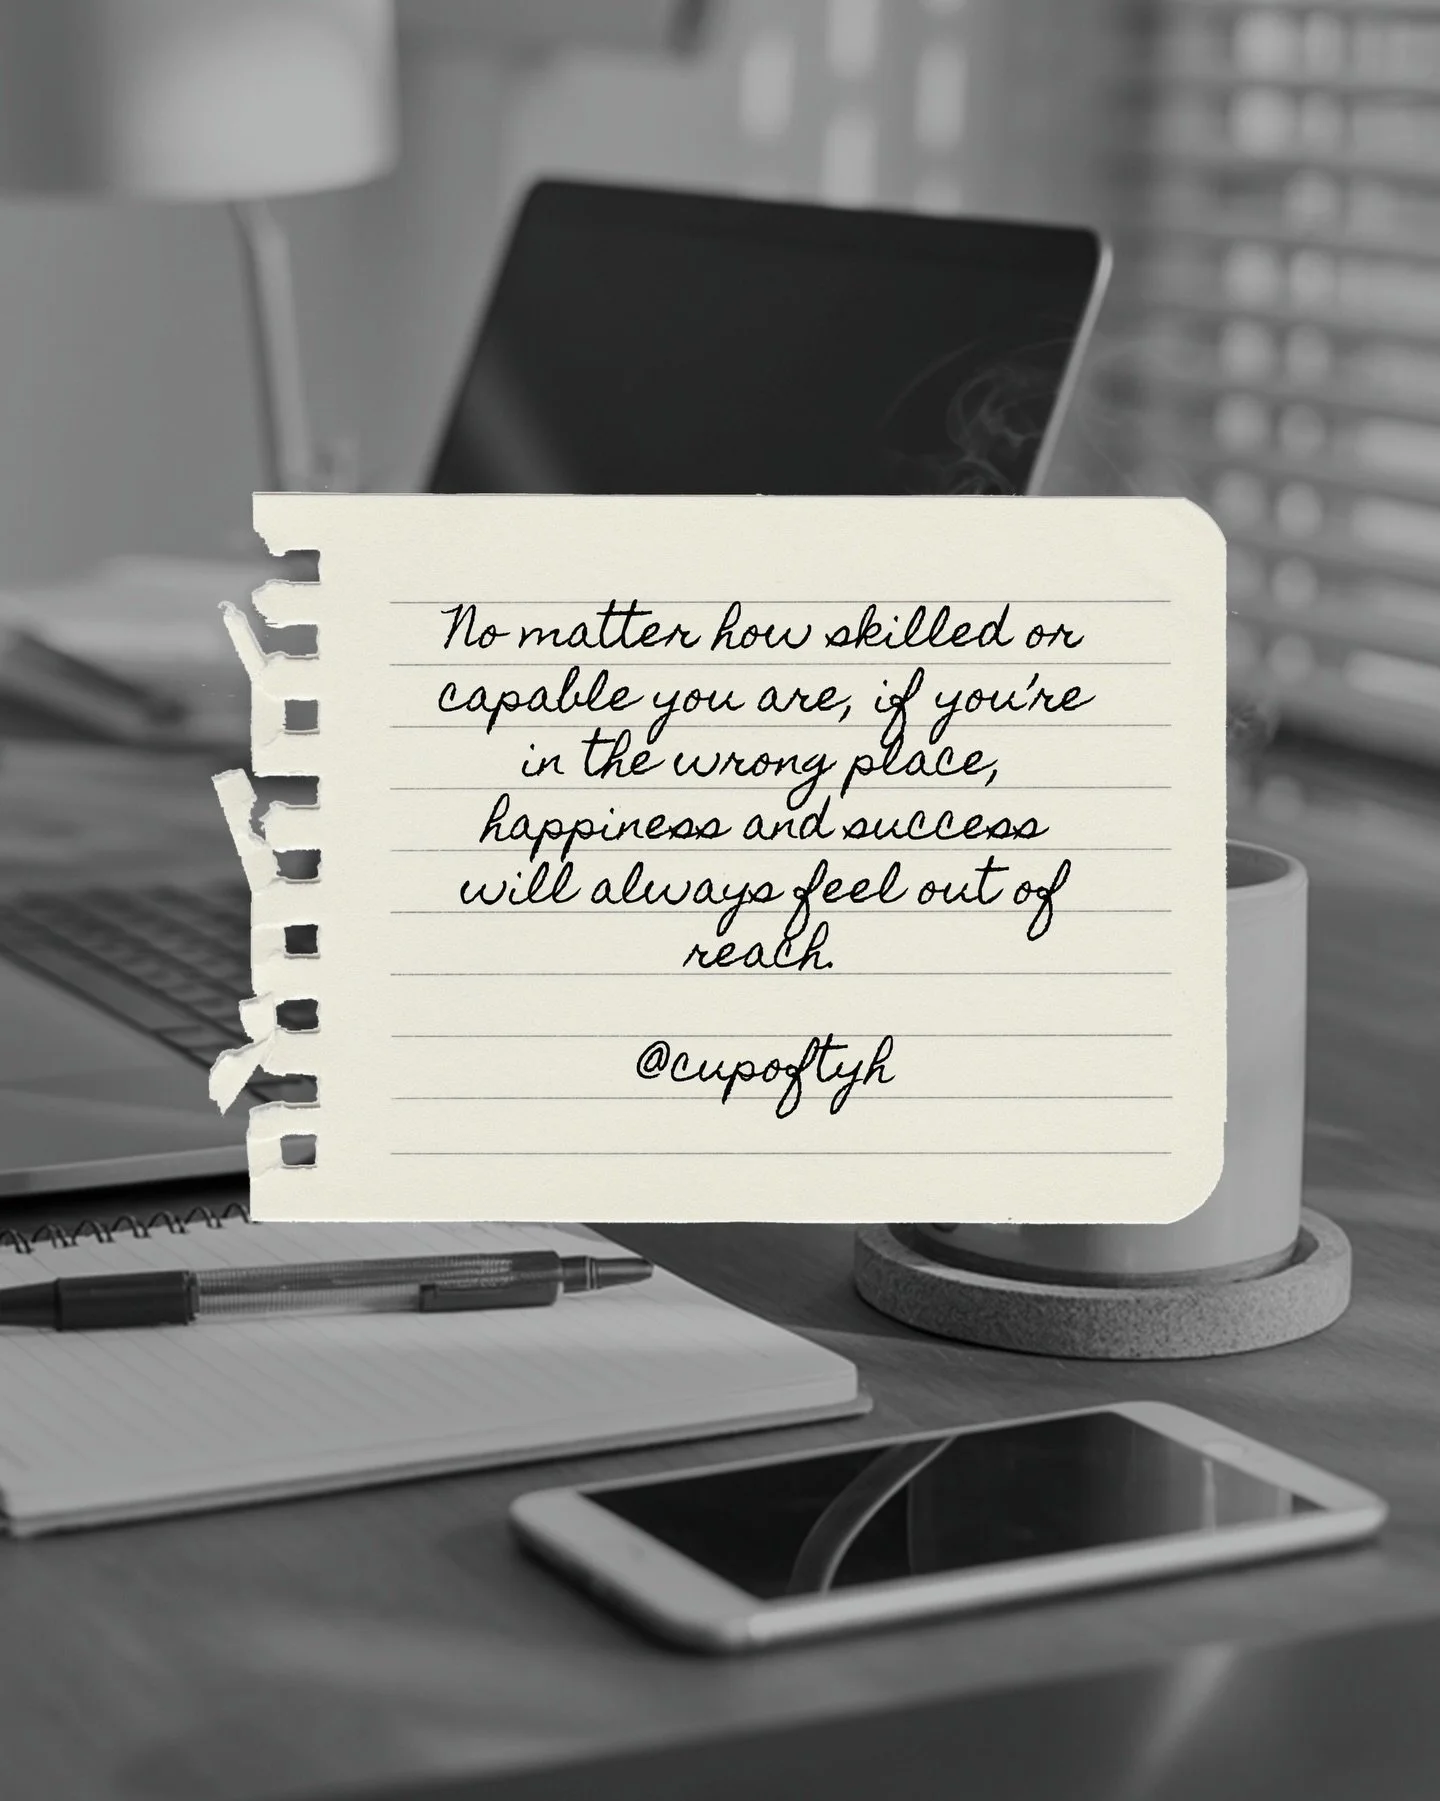 No matter how skilled or
capable you are, if you're
in the wrong place,
happiness and success
will always feel out of
reach.
@cupoftyh